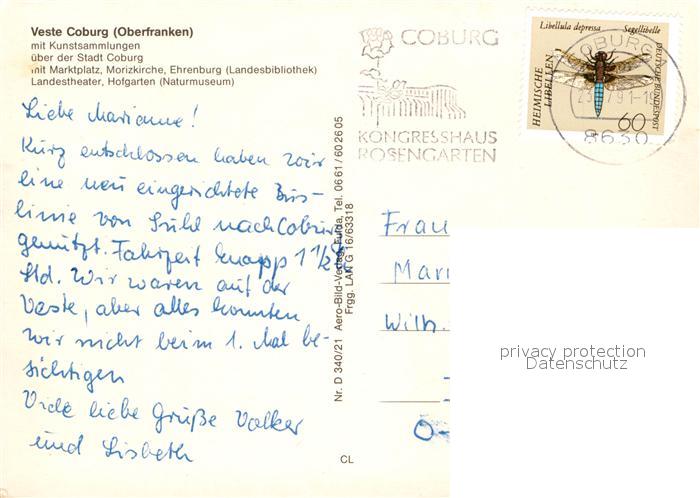 Veste Coburg (Oberfranken)
mit Kunstsammlungen
über der Stadt Coburg
mit Marktplatz, Morizkirche, Ehrenburg (Landesbibliothek)
Landestheater, Hofgarten (Naturmuseum)
Liebe Marianne!
Kurz entschlossen haben wir
eine neu eingerichtete Bus-
linie von Suhl nach Coburg
genutzt. Fahrzeit knapp 1 1/2
Std. Wir waren auf der
Veste, aber alles konnten
wir nicht beim 1. Mal be-
sichtigen
Viele liebe Grüße Volker
und Lisbeth
Nr. D 340/21 Aero-Bild-Verlag, Fulda, Tel. 06 61/60 26 05
Frgg. LAN G 16/63318
CL
COBURG
KONGRESSHAUS
ROSENGARTEN
Libellula depressa Segellibelle
HEIMISCHE
LIBELLEN
DEUTSCHE BUNDESPOST
60
COBURG
8630
Frau
Mari
Wilh.
O-
privacy protection
Datenschutz